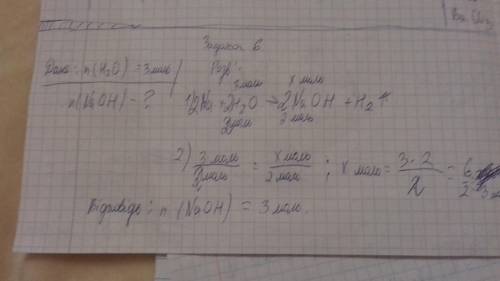 Задача 6.
Дано: n(H₂O) = 3 моль
Розв.:
3 моль x моль
n(NaOH) - ?
1) 2Na + 2H₂O → 2NaOH + H₂↑
2 моль 2 моль
2) 3 моль / 2 моль = x моль / 2 моль ; x моль = 3·2 / 2 = 6 / 2 = 3
Відповідь: n(NaOH) = 3 моль.